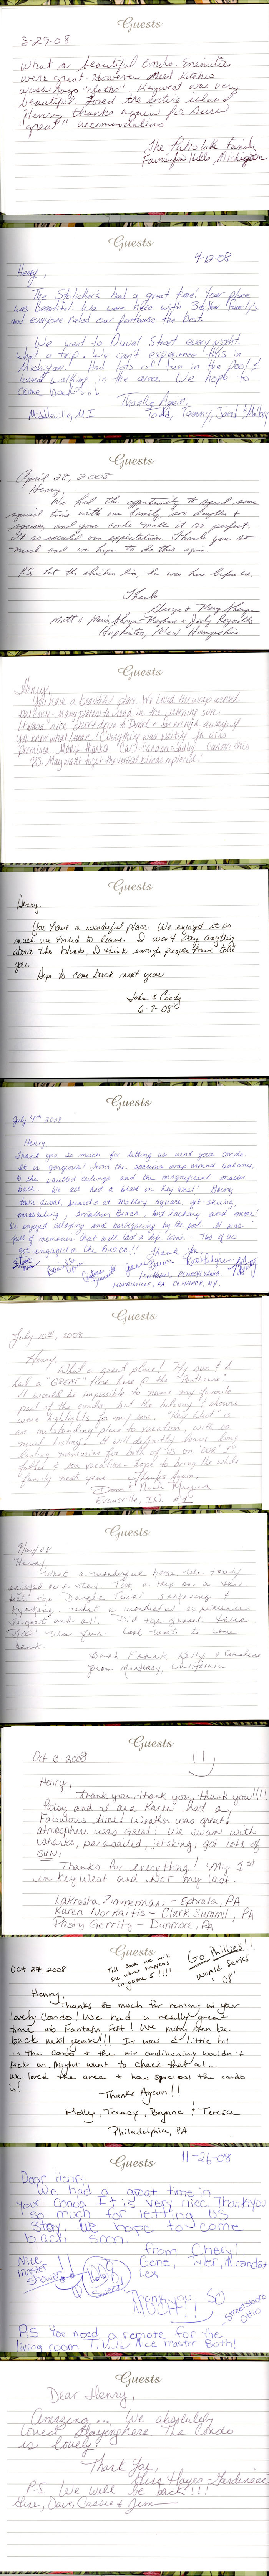 Guests
3-29-08
What a beautiful condo. Enemities
were great. However need kitchen
wash rags "cloths". Keywest was very
beautiful. Loved the entire island
Henry thanks again for such
"great" accomodations
The Family
Farmington Hills, Michigan
Guests
4-12-08
Henry,
The had a great time! Your place
was beautiful. We were here with 3 other family's
and everyone rated our penthouse the best.
We went to Duval Street every night.
What a trip. We can't experience this in
Michigan. Had lots of fun in the pool &
loved walking in the area. We hope to
come back!!!
Thanks Again,
Middleville, MI Todd, Tammy, Jared &
Guests
April 28, 2008
Henry,
We had the opportunity to spend some
special time with our family, two daughters &
spouses, and your condo made it so perfect.
It so exceeded our expectations. Thank you so
much and we hope to do this again.
P.S. Let the chicken live, he was here before us.
Thanks
George & Mary Sharpe
Matt & Sharpe Hughes & Reynolds
Hopkinton, New Hampshire
Guests
Henry,
You have a beautiful place. We loved the wrap around
balcony - many places to read in the morning sun.
It was nice short drive to Duval & far enough away, if
you know what I mean! Everything was waiting for us as
promised. Many thanks. Canton Ohio
P.S. May want to get the vertical blinds replaced!
Guests
Henry.
You have a wonderful place. We enjoyed it so
much we hated to leave. I won't say anything
about the blinds. I think enough people have told
you.
Hope to come back next year
John & Cindy
6-7-08
Guests
July 4th 2008
Henry
Thank you so much for letting us rent your condo.
It is gorgeous! From the spacious wrap around balcony
to the vaulted ceilings and the magnificent master
bath. We all had a blast in Key West! Going
down duval, sunsets at Mallory square, jet-skiing,
parasailing, Smathers Beach, Fort Zachary and more!
We enjoyed relaxing and barbequing by the pool. It was
full of memories that will last a life time - Two of us
got engaged on the Beach!! Thank You
Levittown, Pennsylvania
Morrisville, PA Commack, NY.
Guests
July 10th, 2008
Henry,
What a great place! My son & I
had a "GREAT" time here @ the "Penthouse."
It would be impossible to name my favorite
part of the condo, but the balcony & shower
were highlights for my son. "Key West" is
an outstanding place to vacation, with so
much history. It will definitely leave long
lasting memories for both of us on "OUR" 1st
father & son vacation - hope to bring the whole
family next year. Thanks Again.
& Noah
Evansville, IN
Guests
08
Henry,
What a wonderful home. We truly
enjoyed our stay. Took a trip on a
but the Danger Tour snorkeling &
kyaking. What a wonderful experience
and all. Did the ghost tour
too - was fun. Can't wait to come
back.
Brad Kelly & Caroline
from Monterey, California
Guests
Oct 3 2008
Henry,
Thank you, thank you, thank you!!!!
Patsy and il and Karen had a
Fabulous time! Weather was great,
atmosphere was Great! We swam with
sharks, parasailed, jet skiing, got lots of
SUN!
Thanks for everything! My 1st
in Key West and NOT my last.
LaKrosta Zimmerman - Ephrata, PA
Karen Norkaitis - Clark Summit, PA
Pasty Gerrity - Dunmore, PA
Guests
Oct 27, 2008
Tell cont we will
see what happens
in game 5!!!!
Go Phillies!!
World Series
08'
Henry,
Thanks so much for renting us your
lovely Condo! We had a really great
time at Fantasy Fest! We may even be
back next year!!! It was a little hot
in the condo & the air conditioning wouldn't
kick on. Might want to check that out...
we loved the area & how spacious the condo
is!
Thanks Again!!
Molly, Treacy, Brynne & Teresa
Philadelphia, PA
Guests
11-26-08
Dear Henry,
We had a great time in
your Condo. It is very nice. Thankyou
so much for letting us
stay. We hope to come
back soon.
from Cheryl,
Gene, Tyler, Miranda &
Lex
Nice
master
Shower!!
Thank you SO
MUCH!!
Streetsboro
Ohio
P.S. You need a remote for the
living room T.V.!! Nice master Bath!
Guests
Dear Henry,
Amazing... We absolutely
loved staying here. The Condo
is lovely.
Thank You,
Gina Hayes-
P.S. We will be back!!!
Gina, Dave, Cassie & Jim